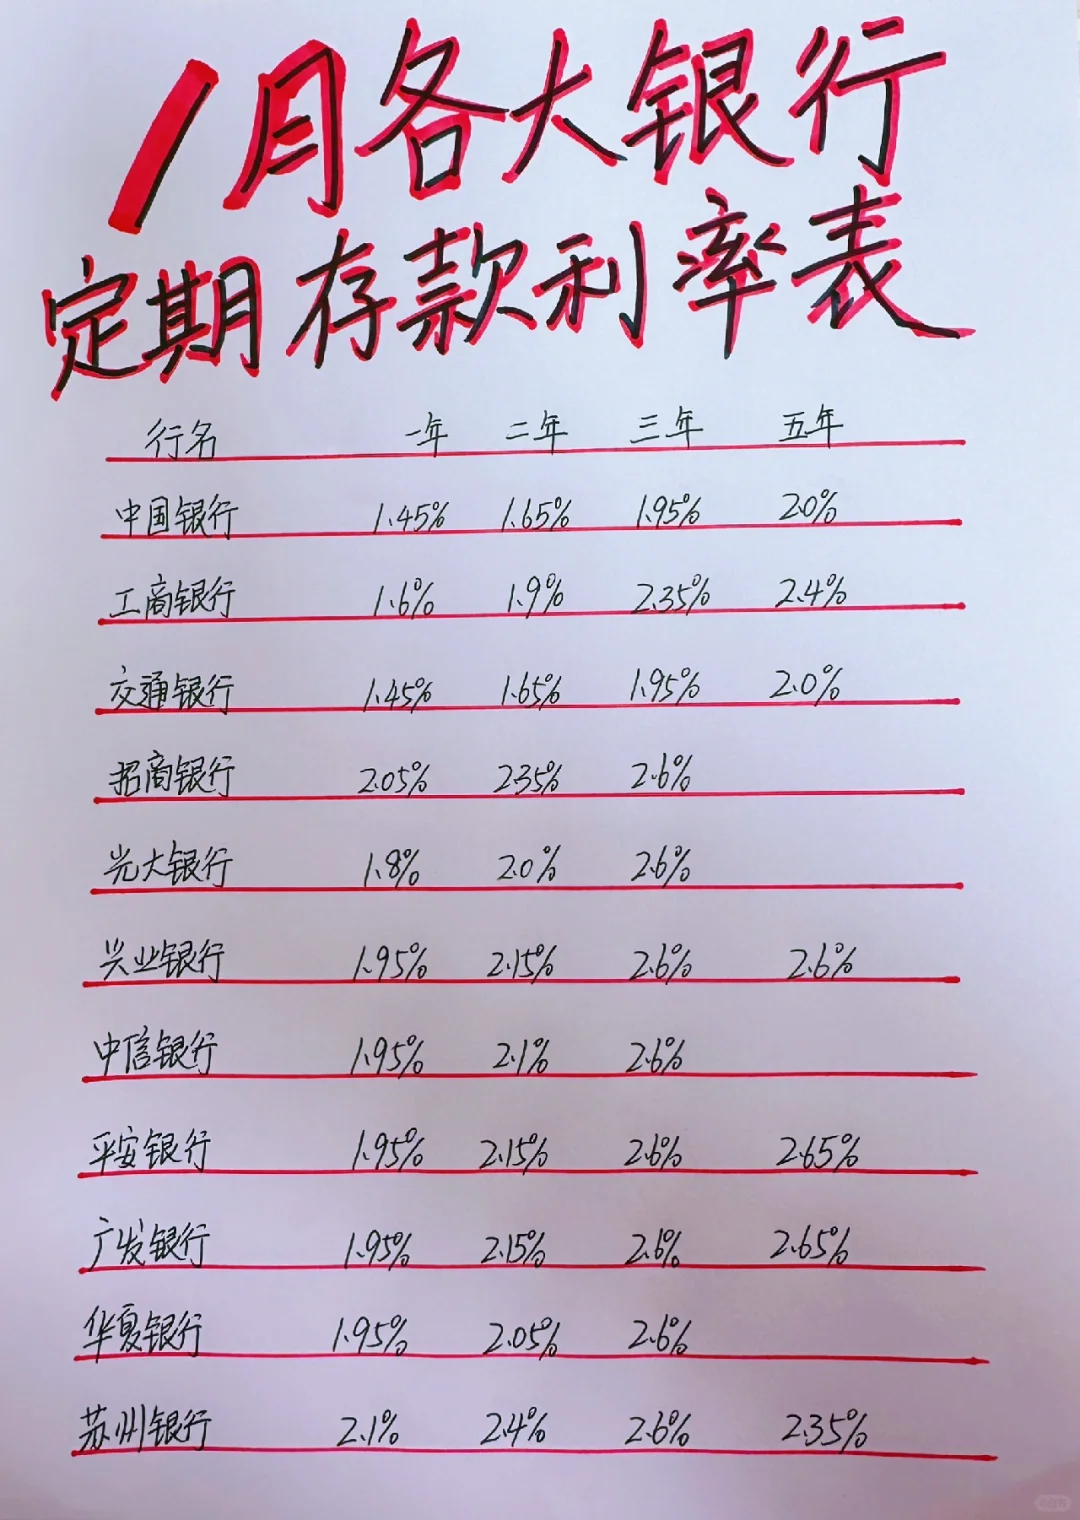 1月各大银行
定期存款利率表
行名 一年 二年 三年 五年
中国银行 1.45% 1.65% 1.95% 2.0%
工商银行 1.6% 1.9% 2.35% 2.4%
交通银行 1.45% 1.65% 1.95% 2.0%
招商银行 2.05% 2.35% 2.6%
光大银行 1.8% 2.0% 2.6%
兴业银行 1.95% 2.15% 2.6% 2.6%
中信银行 1.95% 2.1% 2.6%
平安银行 1.95% 2.15% 2.6% 2.65%
广发银行 1.95% 2.15% 2.6% 2.65%
华夏银行 1.95% 2.05% 2.6%
苏州银行 2.1% 2.4% 2.6% 2.35%